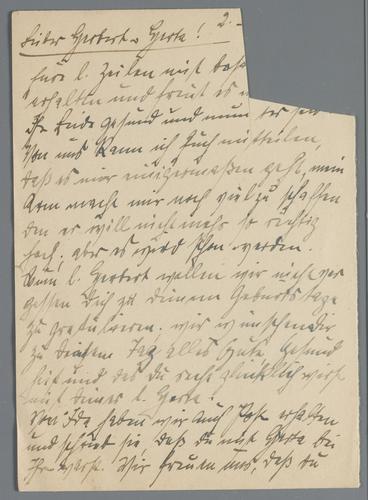 Lieber Herbert u Gerta! 2.-
Eure l. Zeilen mit
erhalten und freut es
Ihr Beide gesund und munter seid
Von uns kann ich Euch mitteilen,
daß es mir einigermaßen geht, mein
Arm macht mir noch viel zu schaffen
den er will nicht mehr so richtig
hoch, aber es wird schon werden.
Nun l. Herbert wollen wir nicht ver
gessen Dich zu deinem Geburtstage
zu gratulieren. wir wünschen Dir
zu diesem Tag alles Gute, Gesund
heit und das du recht glücklich wirst
mit deiner l. Gerta.
Von Ida haben wir auch Post erhalten
und schrieb sie daß du mit Gerta bei
Ihr warst. Wir freuen uns, daß du